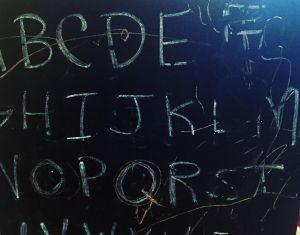 ABCDE
GHIJKLM
NOPQRST